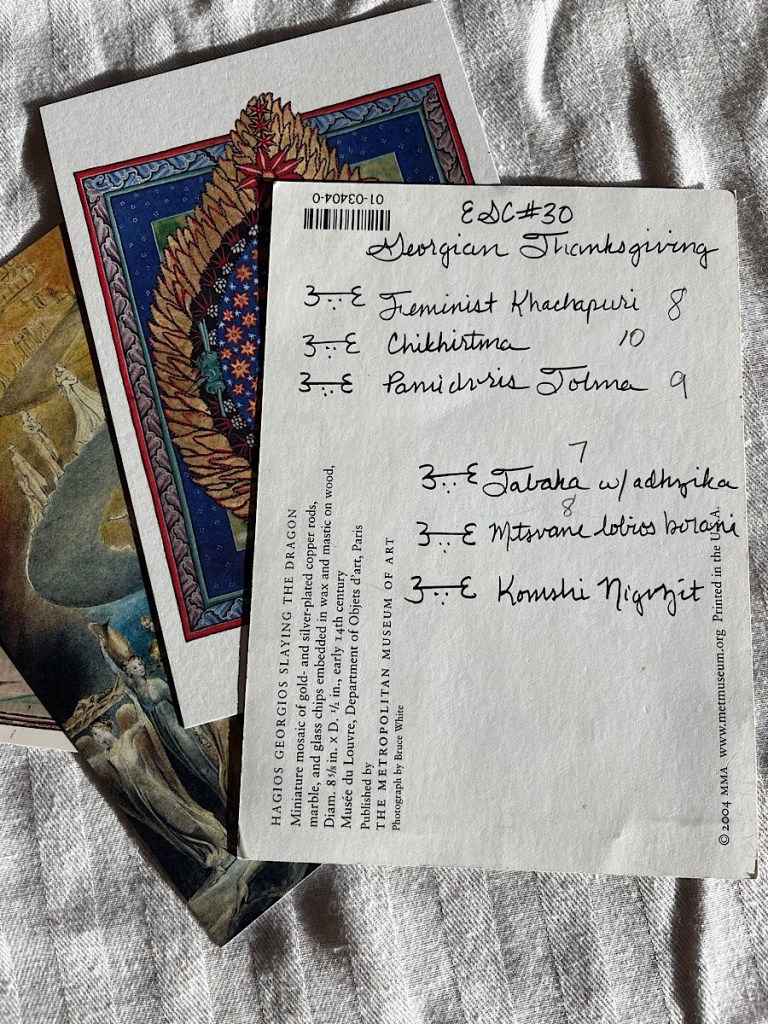 01-03404-0
ESC#30
Georgian Thanksgiving
Feminist Khachapuri 8
Chikhirtma 10
Pamidvris Tolma 9
7
Tabaka w/ adhzika
8
Mtsvane lobios borani
Komshi Nigvzit
HAGIOS GEORGIOS SLAYING THE DRAGON
Miniature mosaic of gold- and silver-plated copper rods,
marble, and glass chips embedded in wax and mastic on wood,
Diam. 8 5/8 in. x D. 1/2 in., early 14th century
Musée du Louvre, Department of Objets d'art, Paris
Published by
THE METROPOLITAN MUSEUM OF ART
Photograph by Bruce White
© 2004 MMA www.metmuseum.org Printed in the U.S.A.